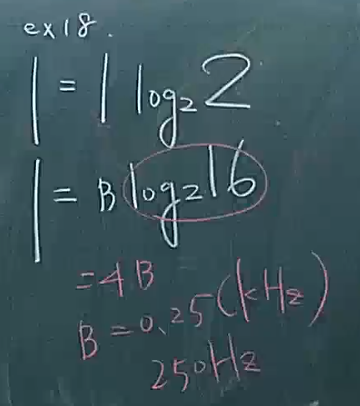 ex18.
1 = 1 log₂2
1 = B log₂16
= 4B
B = 0.25 (kHz)
250Hz